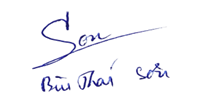 Son
Bùi Thái Sơn